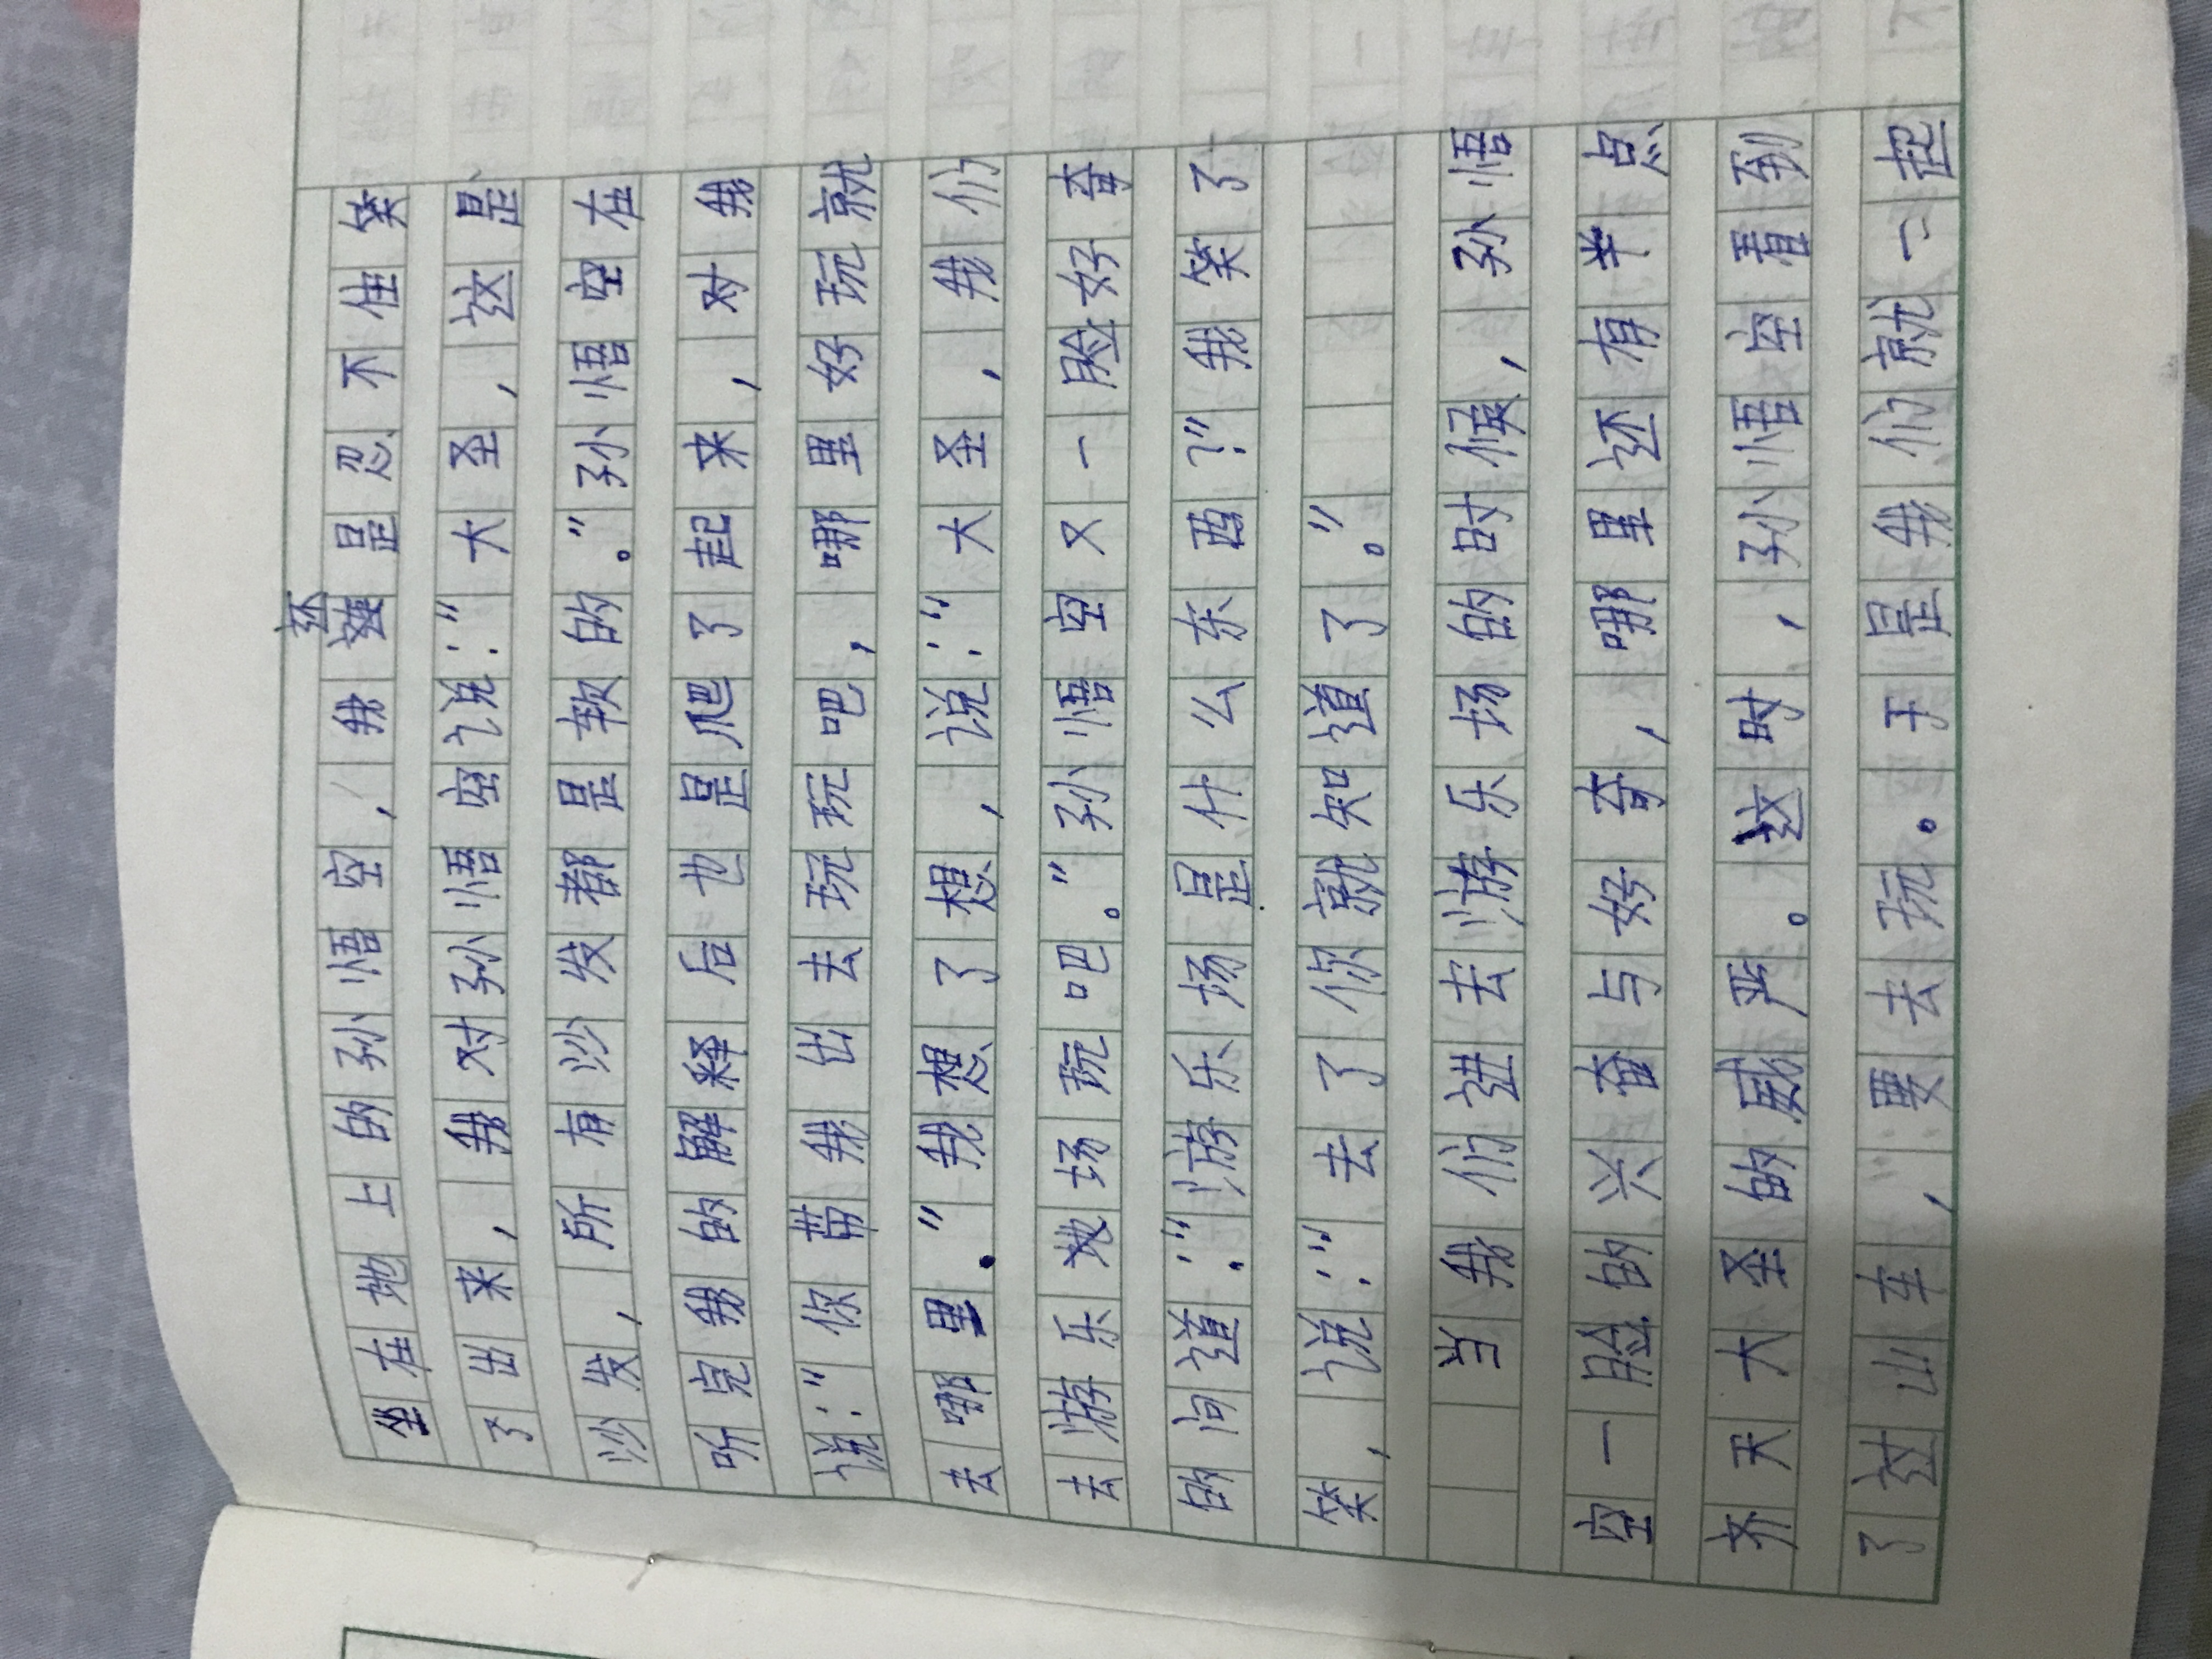 坐在地上的孙悟空，我还是忍不住笑
了出来，我对孙悟空说：“大圣，这是
沙发，所有沙发都是软的。”孙悟空在
听完我的解释后也是爬了起来，对我
说：“你带我出去玩玩吧，哪里好玩就
去哪里。”我想了想，说：“大圣，我们
去游乐场玩吧。”孙悟空又一脸好奇
的问道：“游乐场是什么东西？”我笑了
笑，说：“去了你就知道了。”
当我们进去游乐场的时候，孙悟
空一脸的兴奋与好奇，哪里还有半点
齐天大圣的威严。这时，孙悟空看到
了过山车，要去玩。于是我们就一起